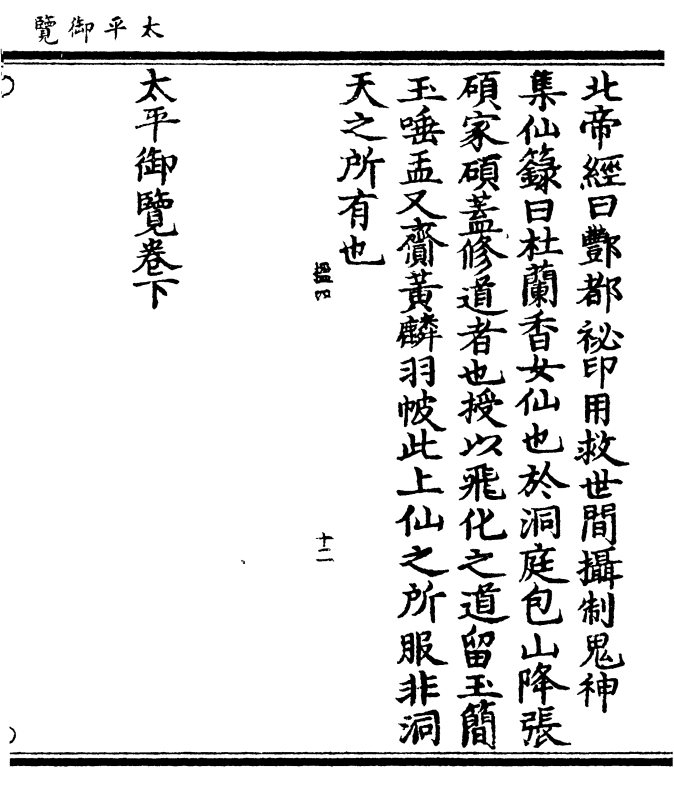 太平御覽
北帝經曰酆都祕印用救世間攝制鬼神
集仙籙曰杜蘭香女仙也於洞庭包山降張
碩家碩蓋修道者也授以飛化之道留玉簡
玉唾盂又齎黃麟羽帔此上仙之所服非洞
天之所有也
十二
太平御覽卷下